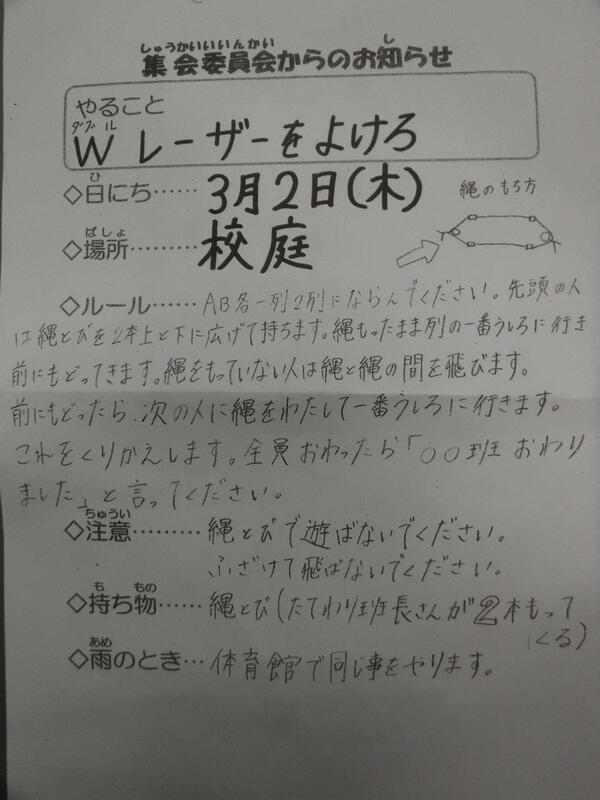 しゅうかいいいんかい し
集会委員会からのお知らせ
やること
ダブル
W レーザーをよけろ
ひ
◇日にち…… 3月2日(木)
縄のもち方
ばしょ
◇場所……… 校庭
◇ルール…… AB各一列2列にならんでください。先頭の人
は縄とびを2本上と下に広げて持ちます。縄もったまま列の一番うしろに行き
前にもどってきます。縄をもっていない人は縄と縄の間を飛びます。
前にもどったら、次の人に縄をわたして一番うしろに行きます。
これをくりかえします。全員おわったら「○○班 おわり
ました」と言ってください。
ちゅうい
◇注意……… 縄とびで遊ばないでください。
ふざけて飛ばないでください。
も もの
◇持ち物…… 縄とび(たてわり班長さんが2本もって
くる)
あめ
◇雨のとき… 体育館で同じ事をやります。